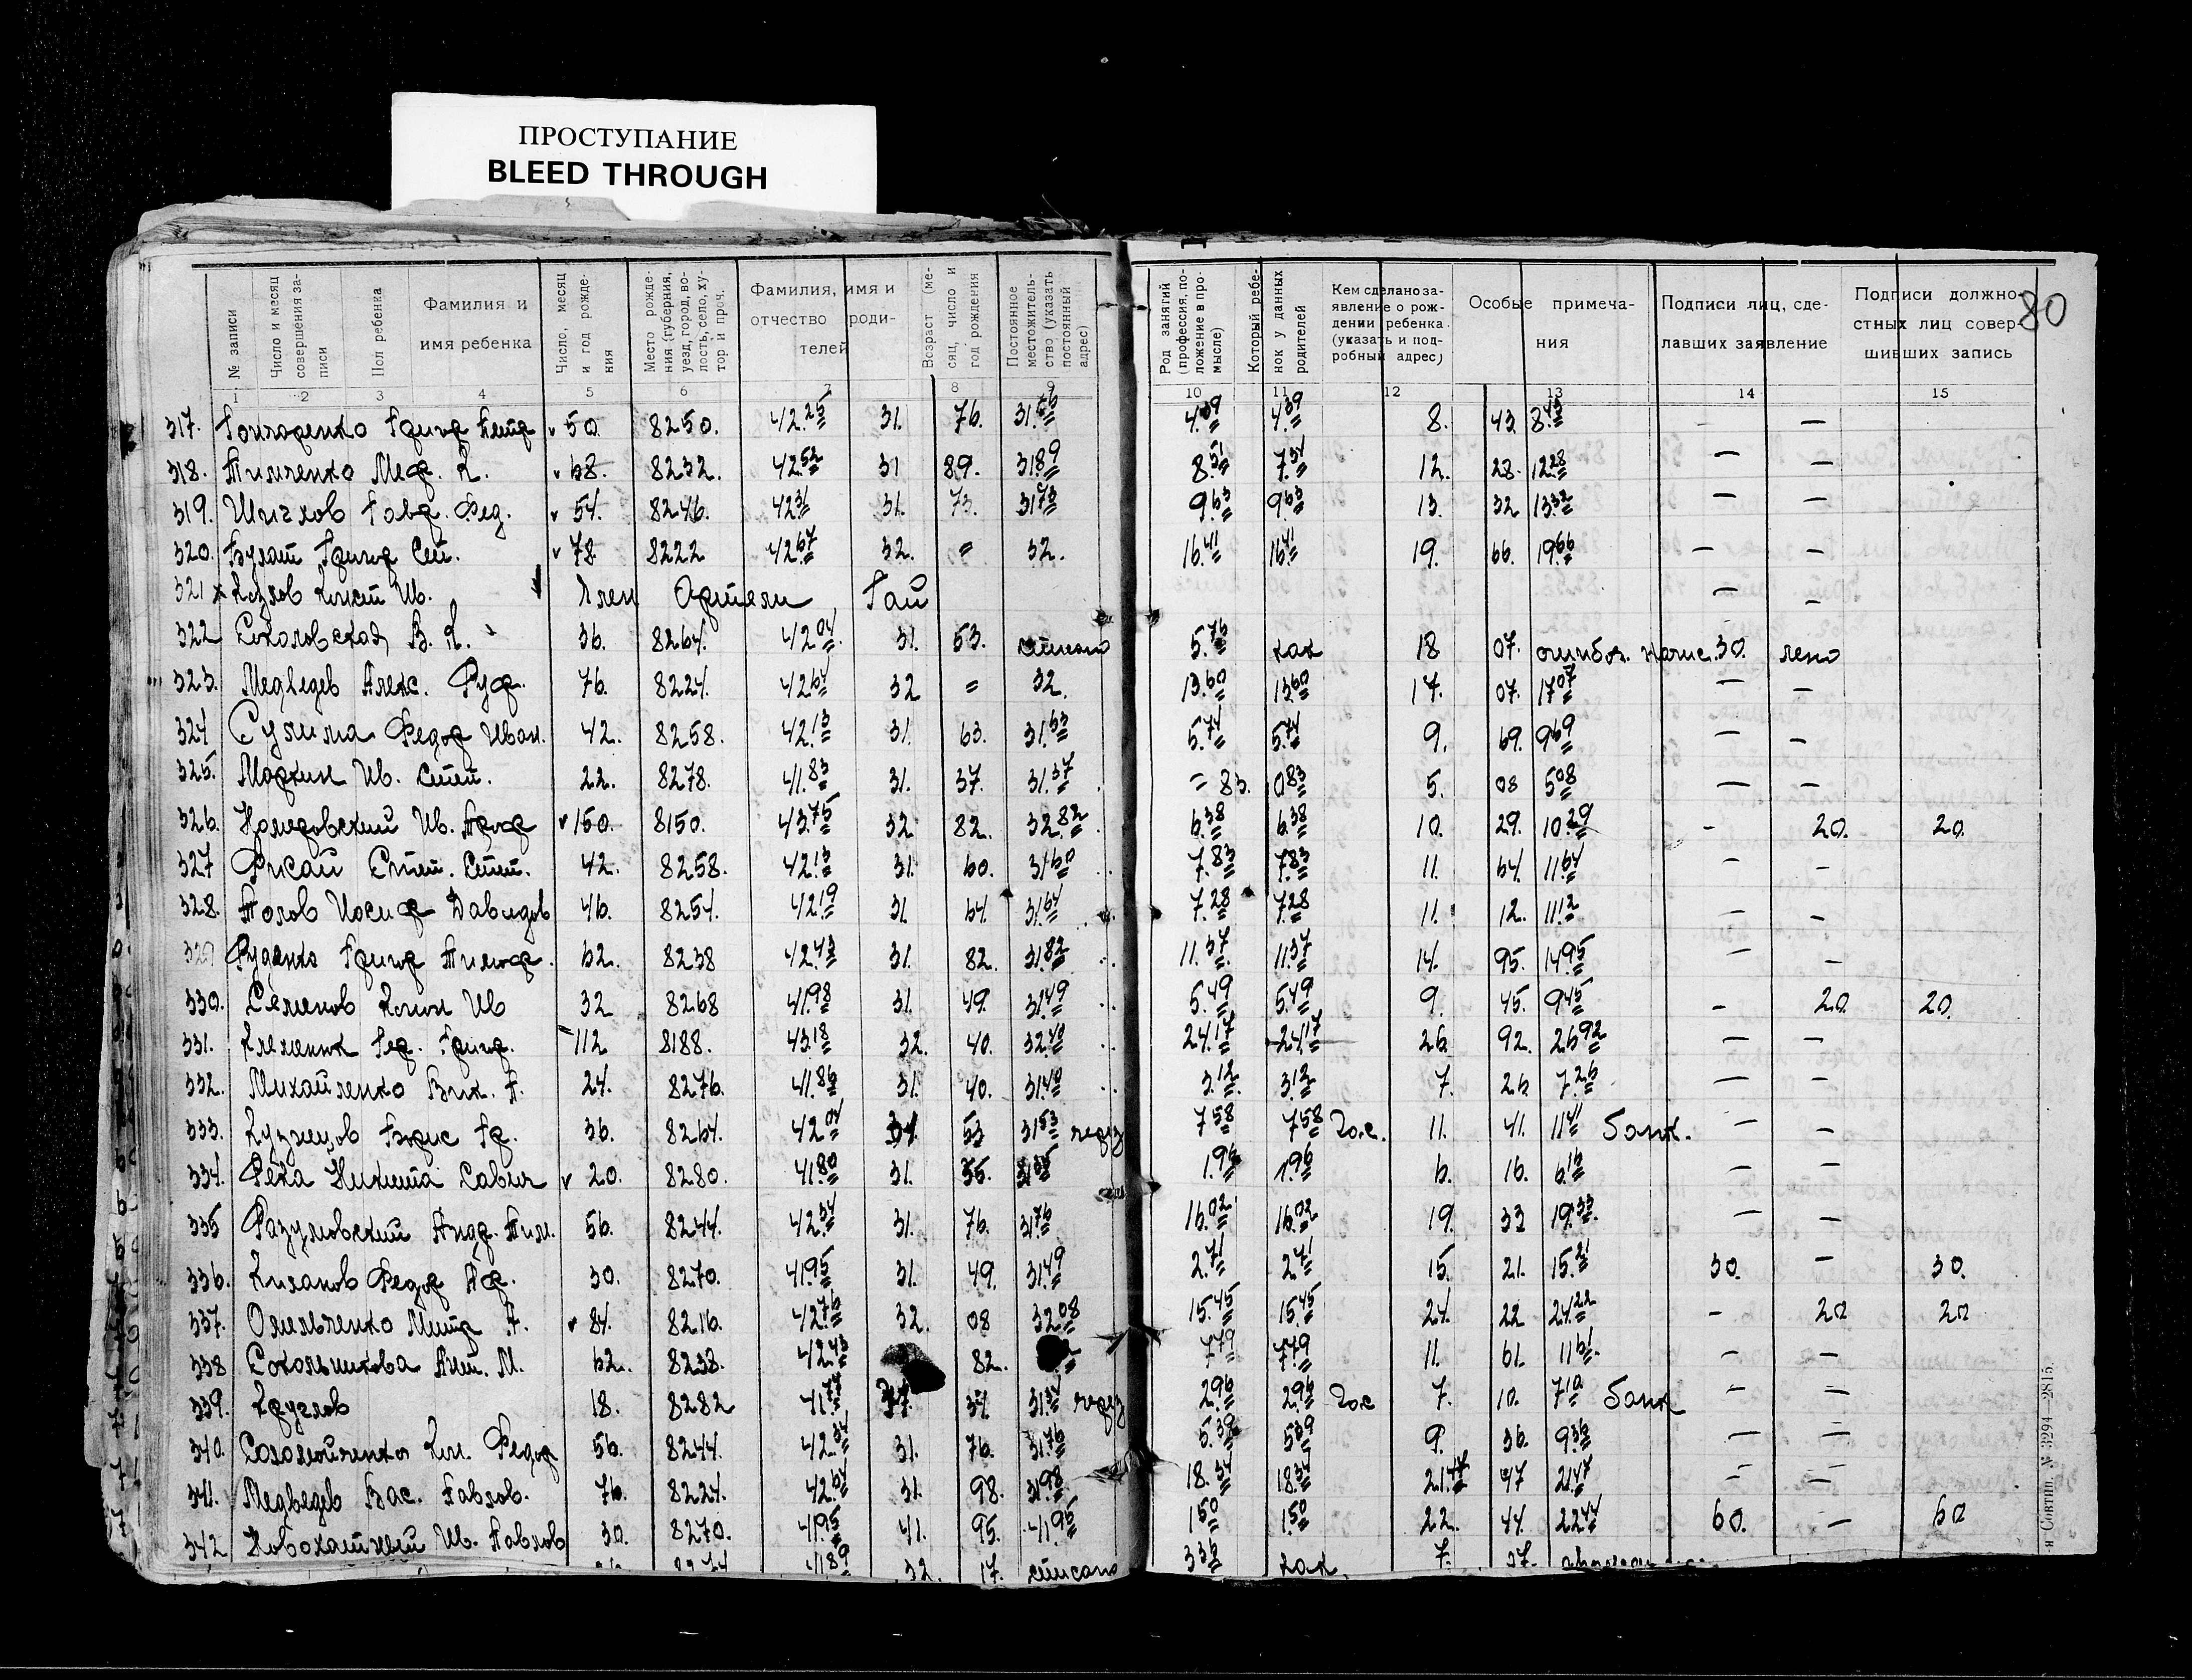 ПРОСТУПАНИЕ
BLEED THROUGH
80
№ записи
Число и месяц совершения записи
Пол ребенка
Фамилия и имя ребенка
Число, месяц и год рождения
Место рождения (губерния, уезд, город, волость, село, хутор и проч.
Фамилия, имя и отчество родителей
Возраст (месяц, число и год рождения
Постоянное местожительство (указать постоянный адрес)
Род занятий (профессия, положение в промысле)
Который ребенок у данных родителей
Кем сделано заявление о рождении ребенка (указать и подробный адрес)
Особые примечания
Подписи лиц, сделавших заявление
Подписи должностных лиц совершивших запись
1 2 3 4 5 6 7 8 9 10 11 12 13 14 15
317. Гончаренко Григор Петр 50 8250. 42.25 31. 76. 4.39 4.39 8. 43. 8.43 - —
318. Тимченко Меф. К. 68. 8232. 42.52 31 89. 31.89 8.51 12. 28. 12.28 — —
319. Шиглов Гавр. Фед. 54. 8246. 42.31 31. 73. 31.73 9.63 9.63 13. 32 13.32 — —
320. Булат Григор Сем. 78 8222 42.67 32. = 32. 16.41 16.41 19. 66. 19.66 — —
321 х Козлов Конст Ив. Член Артели Гай — -
322 Соколовская В. Я. 36. 8264. 42.04 31. 53. списано 5.76 как 18 07. ошибоч. начис. 30. лено
323. Медведев Алекс. 76. 8224. 42.64 32 = 32. 13.60 13.60 17. 07. 17.07 — —
324 Сулима Федор Иван. 42. 8258. 42.13 31. 63. 31.63 5.74 5.74 9. 69. 9.69 — —
325. Маркин Ив. Степ. 22. 8278. 41.83 31. 37. 31.37 = 83. 0.83 5. 08 5.08 — —
326. Ив. 150. 8150. 43.75 32 82. 32.82 6.38 6.38 10. 29. 10.29 - 20. 20.
327 Рисай Степ. Степ. 42. 8258. 42.13 31. 60. 31.60 7.83 7.83 11. 64. 11.64 - -
328. Иосиф Давидов 46. 8254. 42.19 31. 64. 31.64 7.28 7.28 11. 12. 11.12 — -
329 Руденко Григор Тимоф. 62. 8238 42.43 31. 82. 31.82 11.37 11.37 14. 95. 14.95 — -
330. Семенов Ив 32 8268 41.98 31. 49. 31.49 5.49 5.49 9. 45. 9.45 - 20. 20.
331. Клименюк Григор. 112 8188. 43.18 32. 40. 32.40 24.17 24.17 26. 92. 26.92 — —
332. Михайленко Вик. А. 24. 8276. 41.86 31. 40. 31.40 3.12 3.12 7. 26 7.26 — —
333. Кузнецов Борис Гр. 36. 8264. 42.04 31. 53 31.53 через 7.58 7.58 Гос. 11. 41. 11.41 банк. — —
334. Река Никита Савич 20. 8280. 41.80 31. 35. 31.35 1.96 1.96 6. 16. 6.16 — —
335 Разумовский Андр. Тим. 56. 8244. 42.34 31. 76. 31.76 16.02 16.02 19. 33 19.33 — —
336. Федор 30. 8270. 41.95 31. 49. 31.49 2.71 2.71 15. 21. 15.21 30. — 30.
337. Омельченко Митр А. 84. 8216. 42.76 32. 08 32.08 15.45 15.45 24. 22 24.22 - 20 20
338 Сокольникова Ант. М. 62. 8238. 42.43 82. 7.79 7.79 11. 61. 11.61 — —
339. Круглов 18. 8282 41.77 34. 31.34 через 2.96 2.96 Гос 7. 10. 7.10 банк — —
340. Федор 56. 8244. 42.34 31. 76. 31.76 5.39 5.39 9. 36. 9.36 — —
341. Медведев Вас. Павлов. 76. 8224. 42.64 31. 98. 31.98 18.34 18.34 21. 47 21.47 — —
342 Новохатний Ив. Павлов 30. 8270. 41.95 41. 95. 41.95 1.50 1.50 22. 44. 22.44 60. — 60
8274 41.89 32. 17. списано 3.36 как 7. 27.